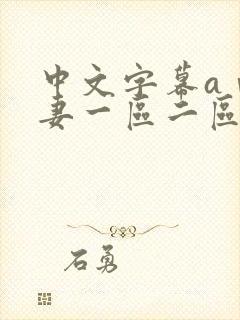 中文字幕a
妻一區二區
石勇